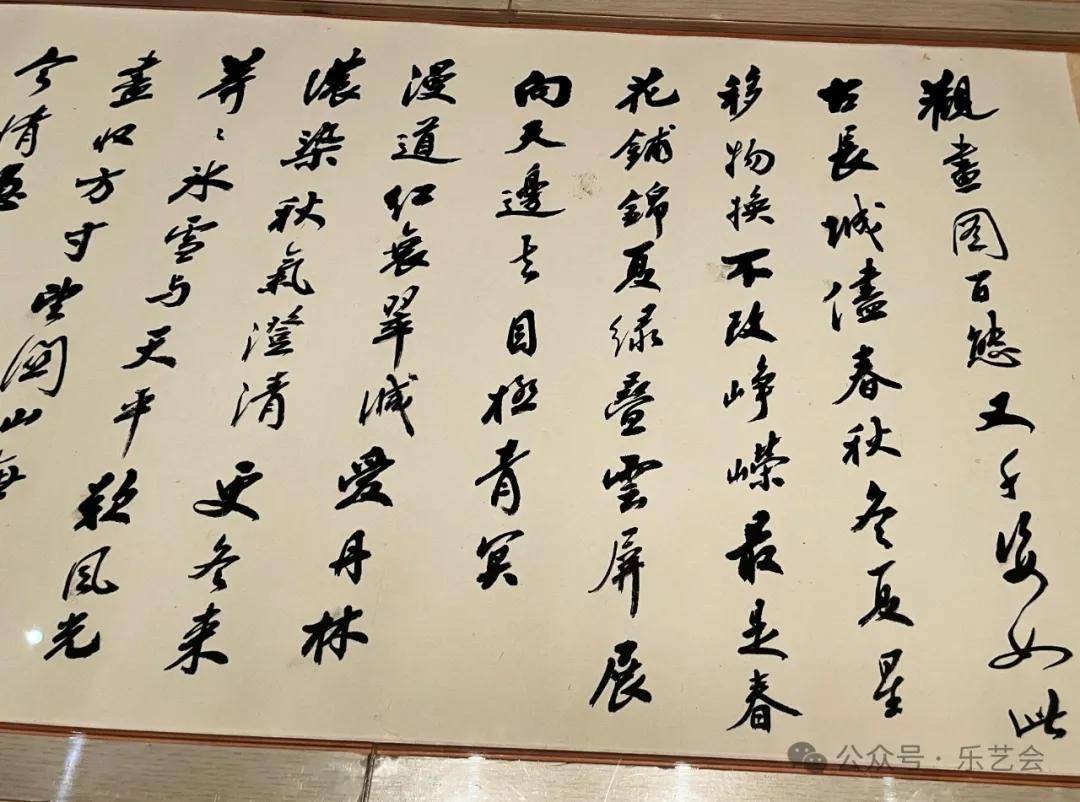 觀畫图百態又千姿如此
古長城儘春秋冬夏星
移物換不改峥嶸最是春
花鋪錦夏绿叠雲屏展
向天邊去目极青冥
漫道红衰翠减愛丹林
濃染秋氣澄清更冬来
莽〻冰雪与天平歎風光
盡收方寸望関山無
今情
公众号·乐艺会